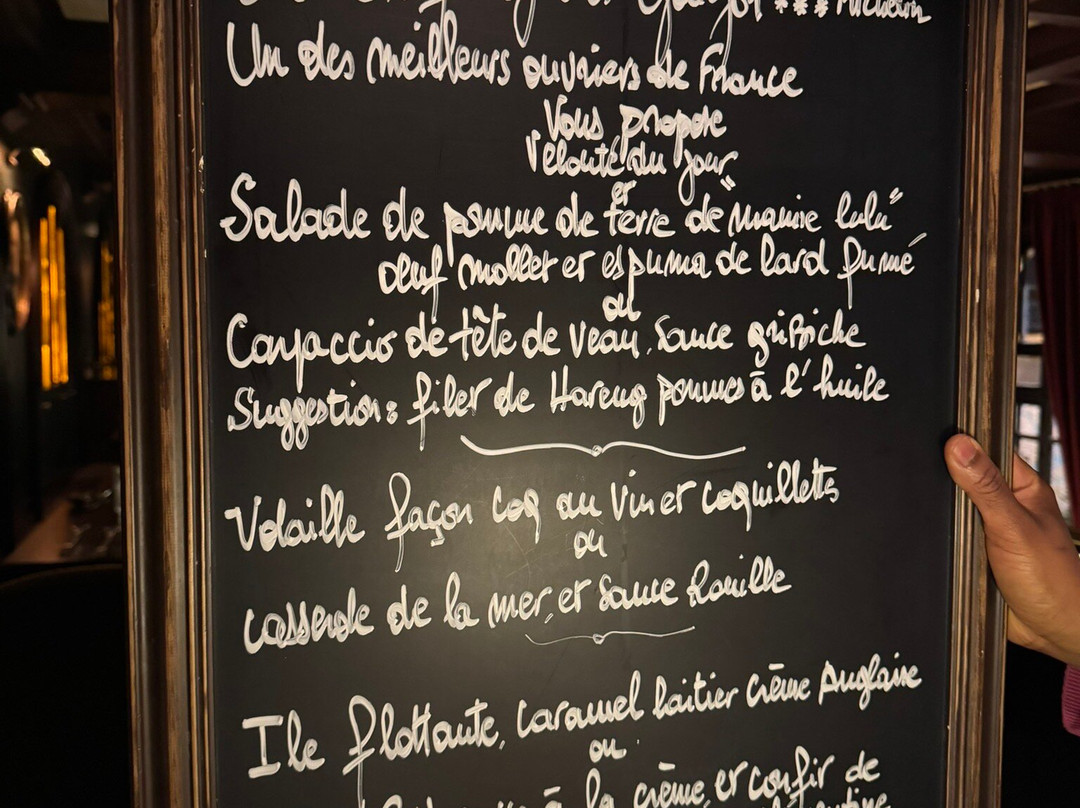 *** Michelin
Un des meilleurs ouvriers de France
Vous propose
Velouté du jour
et
Salade de pomme de terre de "mamie lulu"
œuf mollet et espuma de lard fumé
ou
Carpaccio de tête de veau, sauce gribiche
Suggestion: filet de Hareng pommes à l'huile
Volaille façon coq au vin et coquillettes
ou
casserole de la mer, et sauce Rouille
Ile flottante, caramel laitier crème Anglaise
ou
à la crème, et confit de